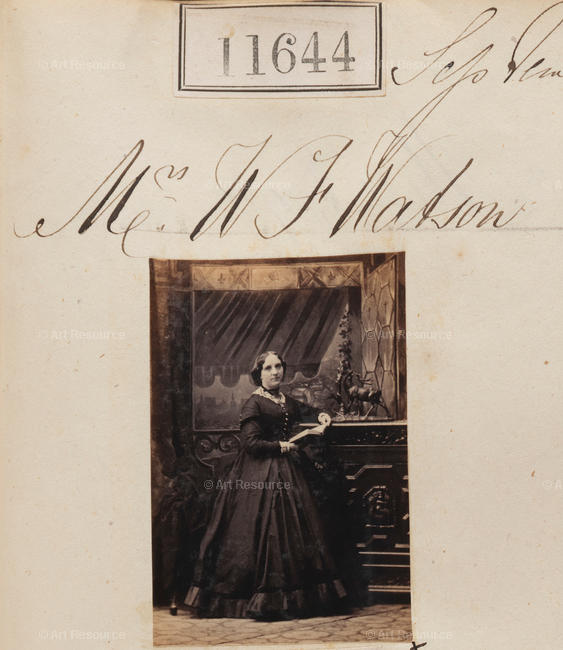 11644
Mrs. W F Watson
© Art Resource
© Art Resource
© Art Resource
© Art Resource
© Art Resource
© Art Resource
© Art Resource
© Art Resource